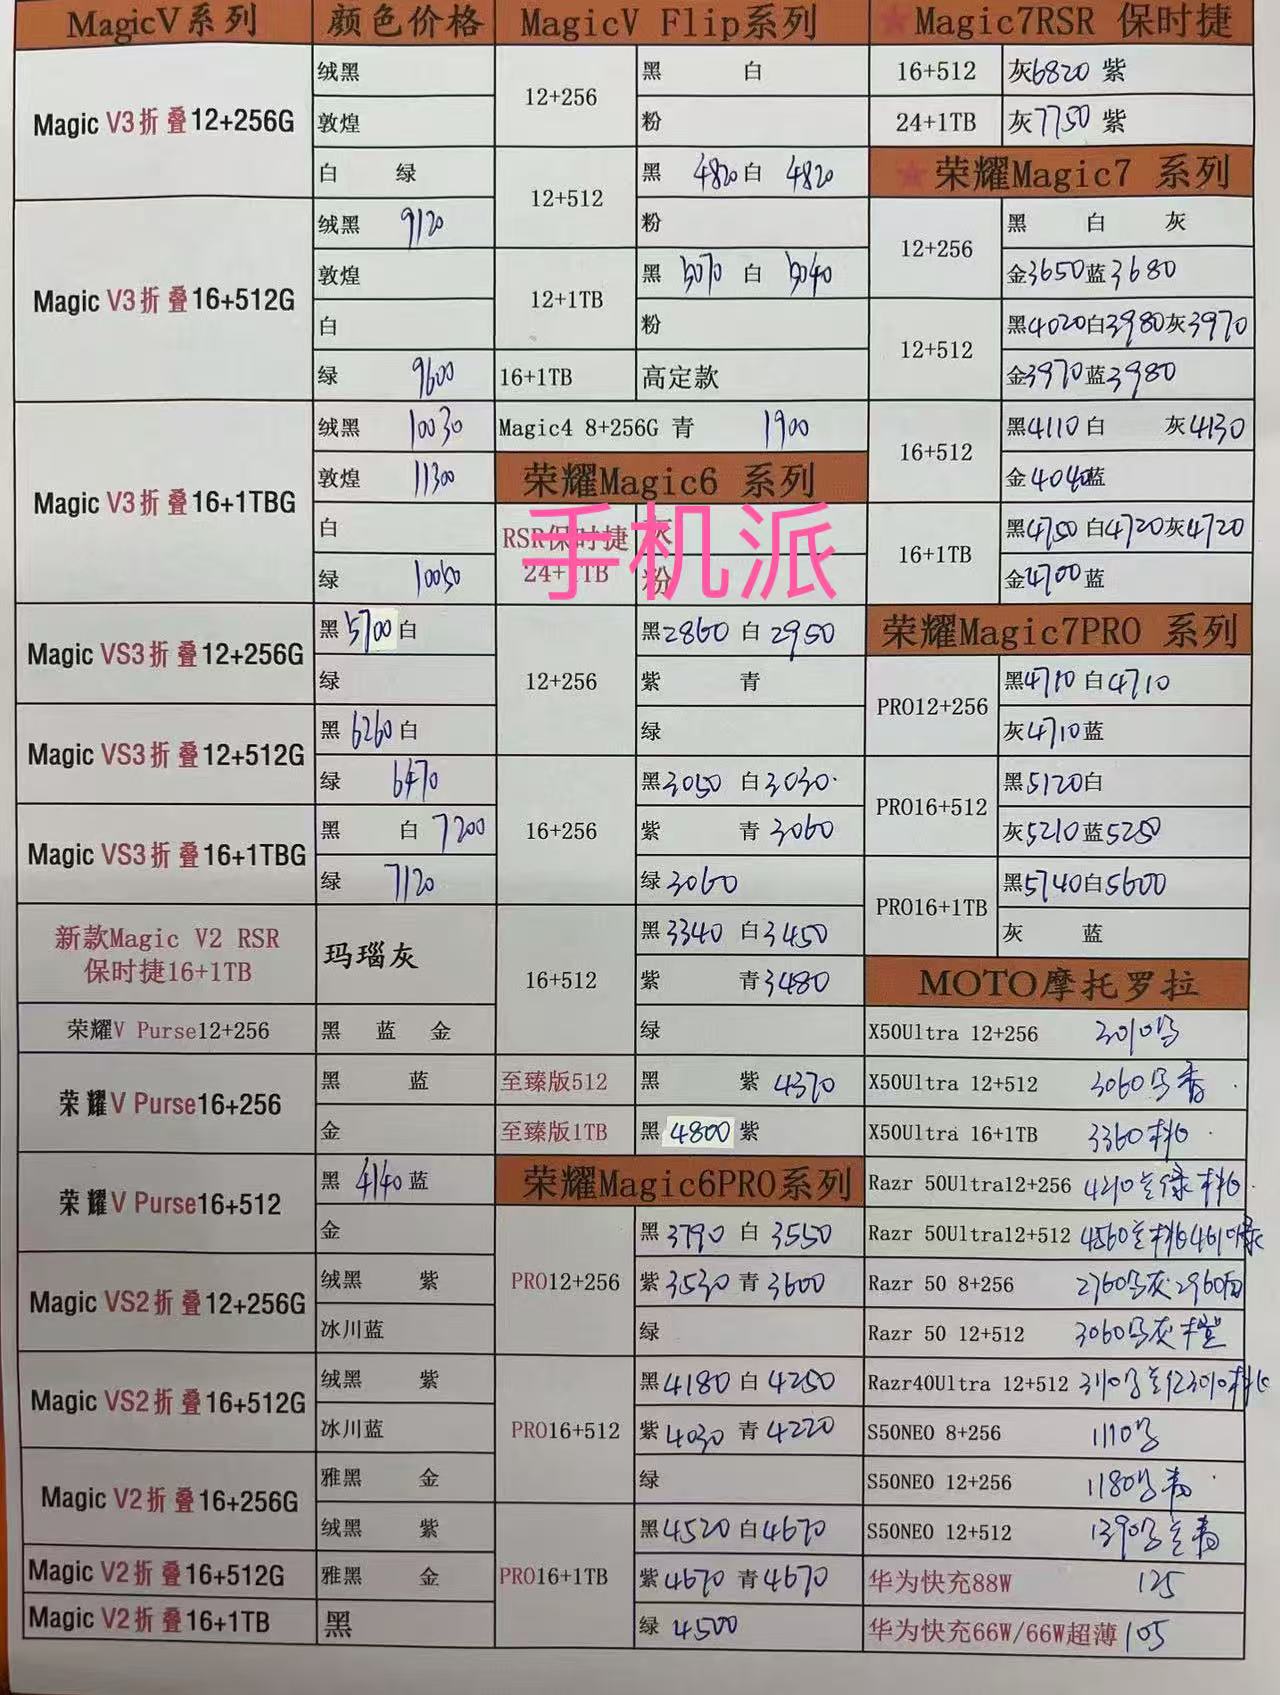 MagicV系列 颜色价格
Magic V3折叠12+256G
绒黑
敦煌
白 绿
Magic V3折叠16+512G
绒黑 9120
敦煌
白
绿 9600
Magic V3折叠16+1TBG
绒黑 10030
敦煌 11300
白
绿 10050
Magic VS3折叠12+256G
黑5700白
绿
Magic VS3折叠12+512G
黑6260白
绿 6470
Magic VS3折叠16+1TBG
黑 白7200
绿 7120
新款Magic V2 RSR
保时捷16+1TB
玛瑙灰
荣耀V Purse12+256
黑 蓝 金
荣耀V Purse16+256
黑 蓝
金
荣耀V Purse16+512
黑 4140蓝
金
Magic VS2折叠12+256G
绒黑 紫
冰川蓝
Magic VS2折叠16+512G
绒黑 紫
冰川蓝
Magic V2折叠16+256G
雅黑 金
绒黑 紫
Magic V2折叠16+512G
雅黑 金
Magic V2折叠16+1TB
黑
MagicV Flip系列
12+256
黑 白
粉
12+512
黑 4820白 4820
粉
12+1TB
黑 5070 白 5040
粉
16+1TB 高定款
Magic4 8+256G 青 1900
荣耀Magic6 系列
RSR保时捷
24+1TB
灰
粉
手机派
12+256
黑2860 白2950
紫 青
绿
16+256
黑3050 白3030
紫 青3060
绿3060
16+512
黑3340 白3450
紫 青3480
绿
至臻版512 黑 紫 4370
至臻版1TB 黑 4800 紫
荣耀Magic6PRO系列
PRO12+256
黑3790 白 3550
紫3530 青 3600
绿
PRO16+512
黑4180 白4250
紫4030 青4220
绿
PRO16+1TB
黑4520白4670
紫4670 青4670
绿 4500
★Magic7RSR 保时捷
16+512 灰6820 紫
24+1TB 灰7750 紫
★荣耀Magic7 系列
12+256
黑 白 灰
金3650蓝3680
12+512
黑4020白3980灰3970
金3970蓝3980
16+512
黑4110白 灰4130
金4040蓝
16+1TB
黑4750白4720灰4720
金4700蓝
荣耀Magic7PRO 系列
PRO12+256
黑4710白4710
灰4710蓝
PRO16+512
黑5120白
灰5210蓝5250
PRO16+1TB
黑5740白5600
灰 蓝
MOTO摩托罗拉
X50Ultra 12+256
X50Ultra 12+512 3060
X50Ultra 16+1TB 3360桃
Razr 50Ultra12+256 4210
Razr 50Ultra12+512
Razr 50 8+256 2760 灰2960白
Razr 50 12+512 3060 灰橙
Razr40Ultra 12+512
S50NEO 8+256
S50NEO 12+256 1180
S50NEO 12+512 1390
华为快充88W 125
华为快充66W/66W超薄 105